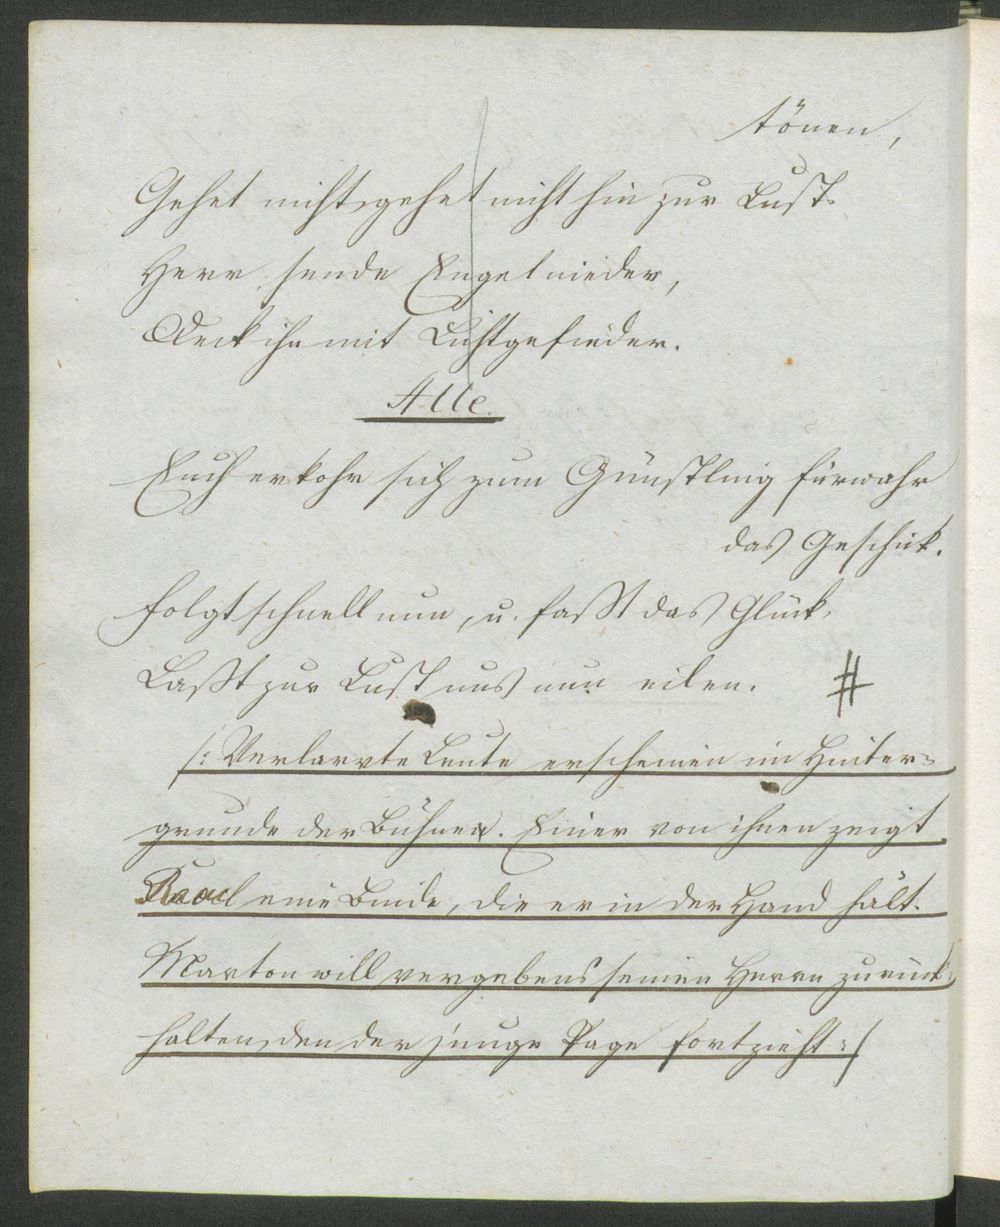 tönen,
Gehet nicht, gehet nicht hin zur Lust.
Herr, sende Engel nieder,
Deck ihn mit Lichtgefieder.
Alle.
Euch erkohr sich zum Günstling fürwahr
das Geschick.
Folgt schnell nun, u. faßt das Glück,
Laßt zur Lust uns nun eilen. #
/: Verlarvte Leute erscheinen im Hinter=
grunde der Bühne. Einer von ihnen zeigt
Raoul eine Binde, die er in der Hand hält.
Marton will vergebens seinen Herrn zurück=
halten, den der junge Page fortzieht :/